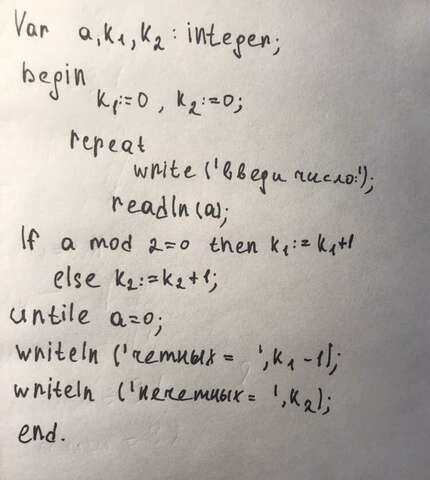 Var a,k1,k2 : integer;
begin
k1:=0, k2:=0;
repeat
write ('введи число:');
readln(a);
If a mod 2=0 then k1:=k1+1
else k2:=k2+1;
untile a=0;
writeln ('четных = ',k1-1);
writeln ('нечетных = ',k2);
end.